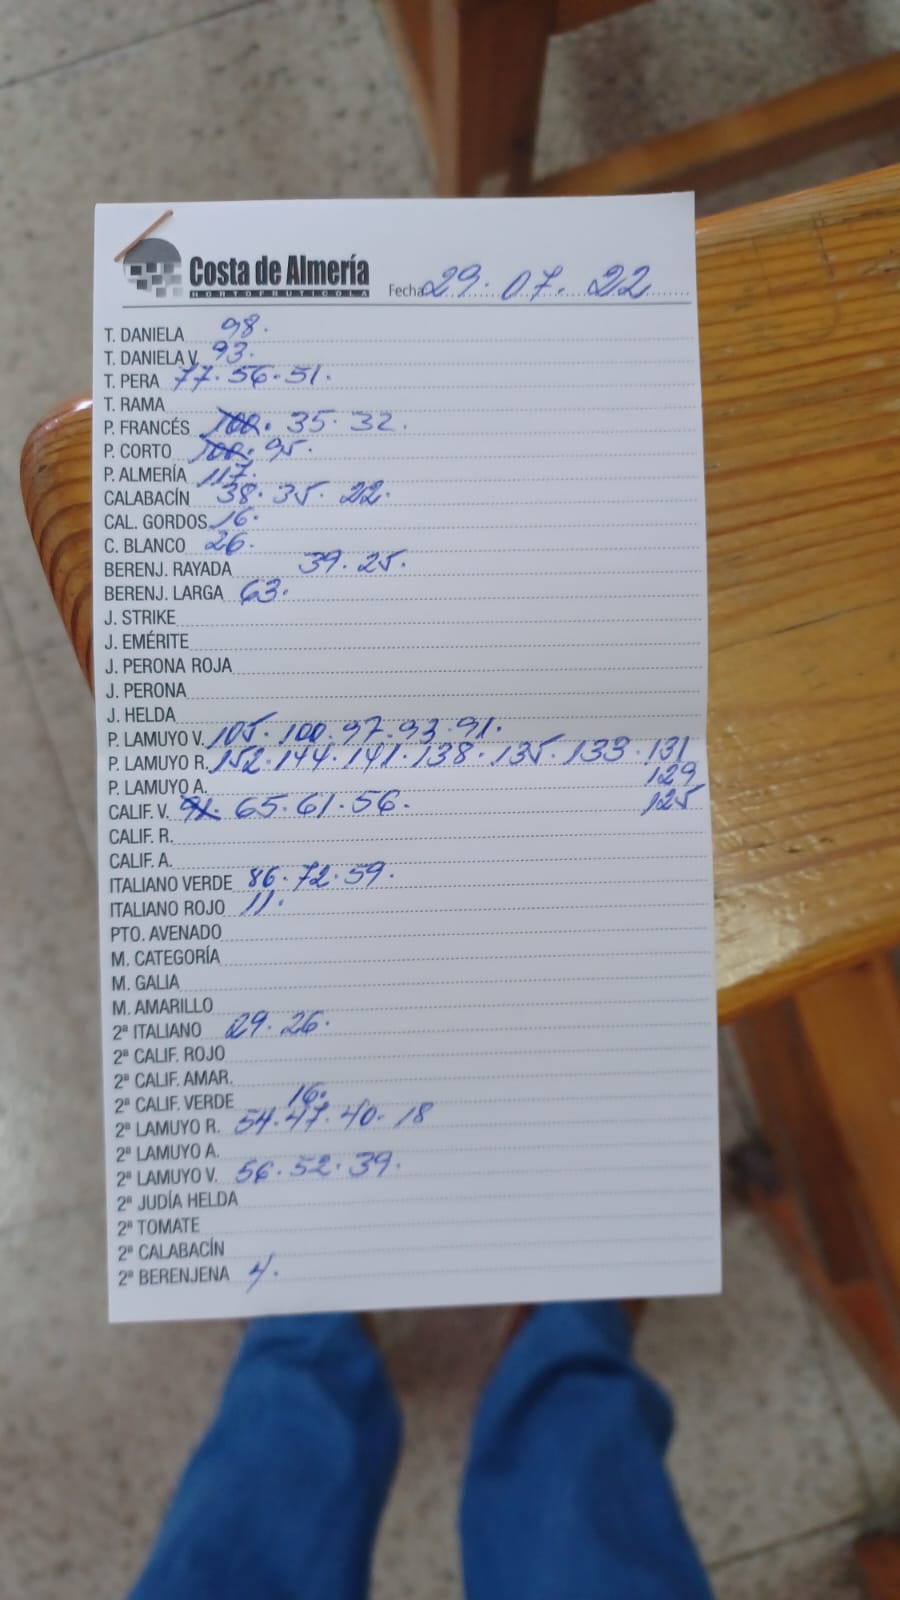 Costa de Almería
HORTOFRUTICOLA
Fecha 29. 07. 22
T. DANIELA 98.
T. DANIELA V. 93.
T. PERA 77. 56. 51.
T. RAMA
P. FRANCÉS 35. 32.
P. CORTO 95.
P. ALMERÍA 117.
CALABACÍN 38. 35. 22.
CAL. GORDOS 16.
C. BLANCO 26.
BERENJ. RAYADA 39. 25.
BERENJ. LARGA 63.
J. STRIKE
J. EMÉRITE
J. PERONA ROJA
J. PERONA
J. HELDA
P. LAMUYO V. 105. 100. 97. 93. 91.
P. LAMUYO R. 152. 144. 141. 138. 135. 133. 131
P. LAMUYO A. 129
CALIF. V. 91. 65. 61. 56. 125
CALIF. R.
CALIF. A.
ITALIANO VERDE 86. 72. 59.
ITALIANO ROJO 11.
PTO. AVENADO
M. CATEGORÍA
M. GALIA
M. AMARILLO
2ª ITALIANO 29. 26.
2ª CALIF. ROJO
2ª CALIF. AMAR.
2ª CALIF. VERDE 16.
2ª LAMUYO R. 54. 47. 40. 18
2ª LAMUYO A.
2ª LAMUYO V. 56. 52. 39.
2ª JUDÍA HELDA
2ª TOMATE
2ª CALABACÍN
2ª BERENJENA 4.